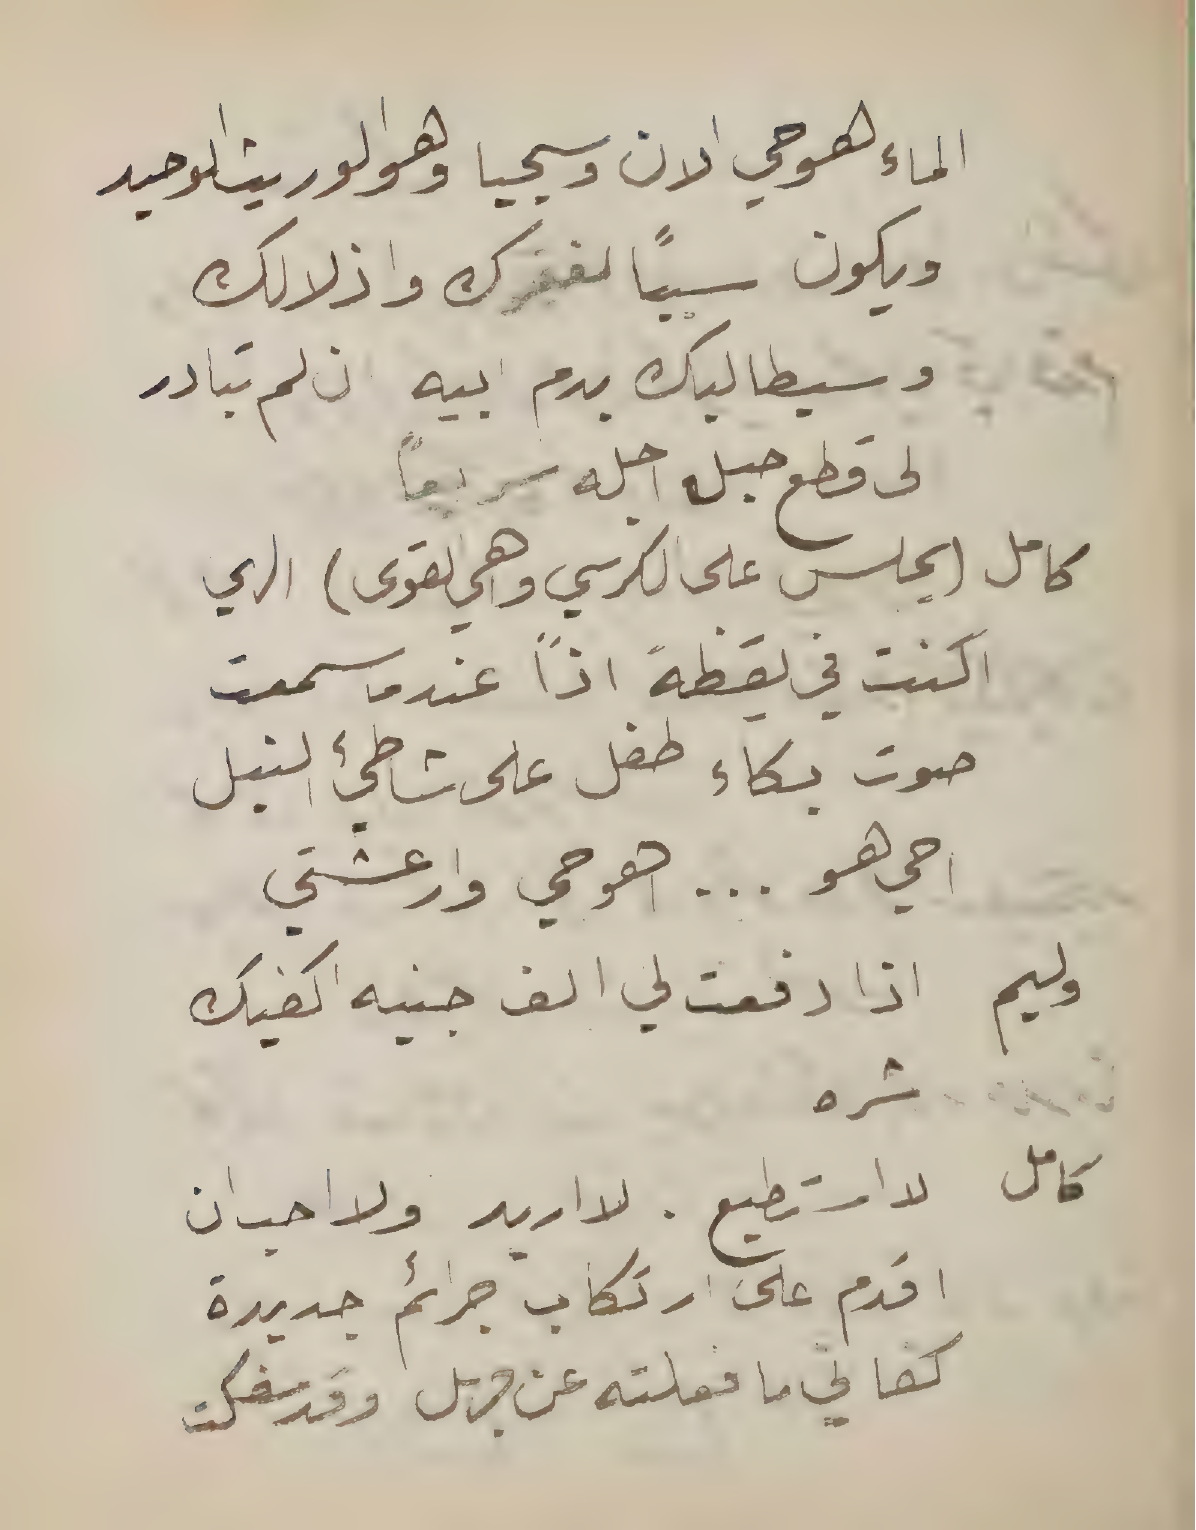 الماء هو حي الان وسيحيا وهو الوريث الوحيد
ويكون سبباً لفقرك واذلالك
وسيطالبك بدم ابيه ان لم تبادر
لى قطع حبل اجله سريعاً
كامل (يجلس على الكرسي وهي القوى) الهي
اكنت في يقظة اذاً عندما سمعت
صوت بكاء طفل على شاطئ النيل
احي هو ... اهو حي وارعشتي
وليم اذا دفعت لي الف جنيه اكفيك
شره
كامل لا استطيع . لا اريد ولا احب ان
اقدم على ارتكاب جرائم جديدة
كفاني ما فعلته عن جهل وقد سفكت